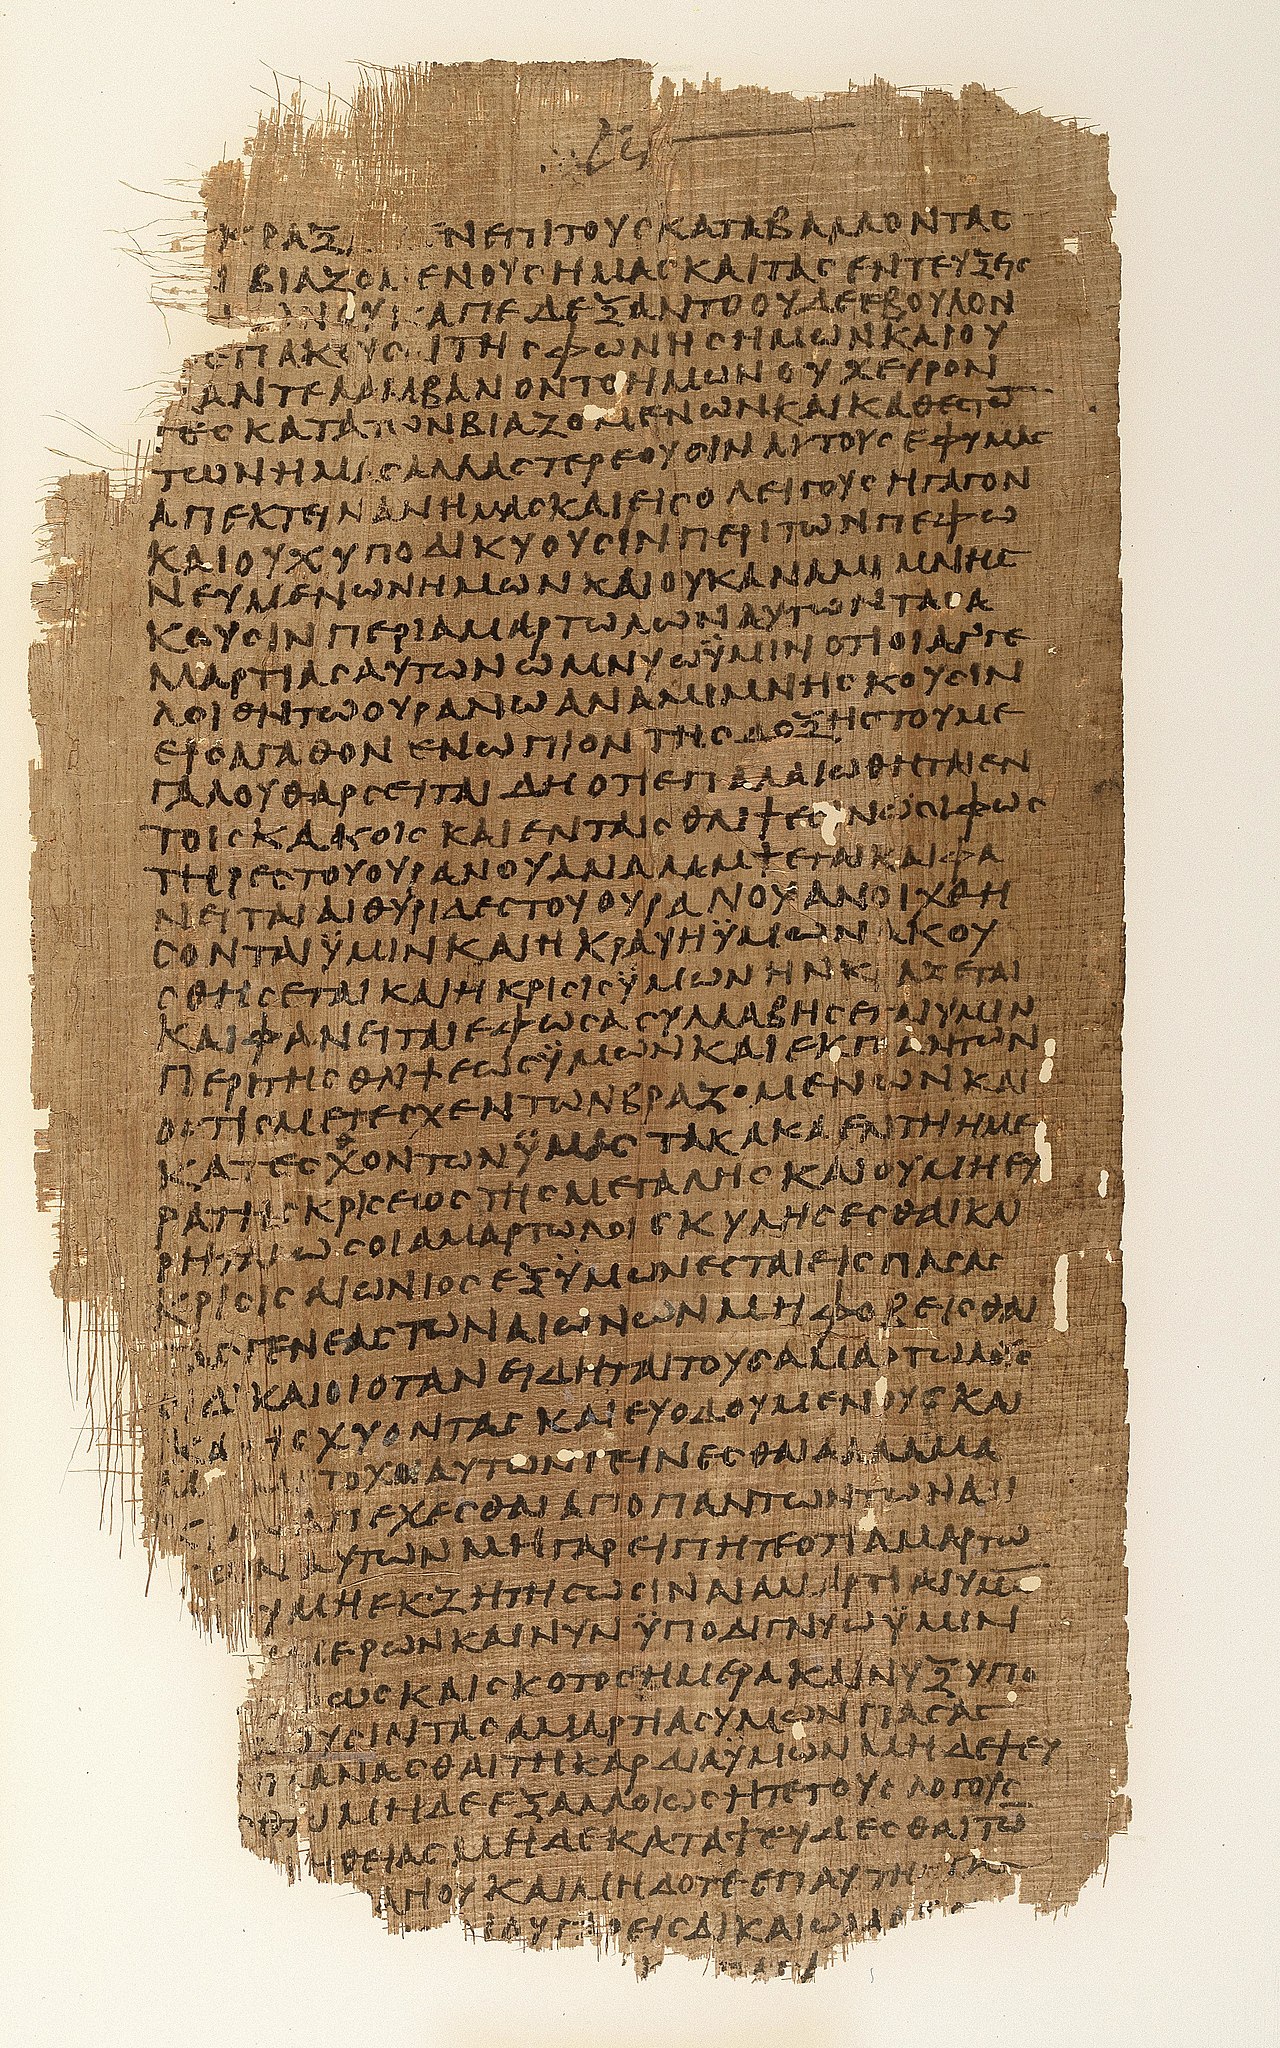 ΕΝΕΠΙΤΟΥϹΚΑΤΑΒΑΛΛΟΝΤΑϹ
ΒΙΑΖΟΜΕΝΟΥϹΗΜΑϹΚΑΙΤΑϹΕΝΤΕΥΞΕΙϹ
ΑΠΕΔΕΞΑΝΤΟΟΥΔΕΕΒΟΥΛΟΝ
ΕΠΑΚΟΥϹΑΙΤΗϹΦΩΝΗϹΗΜΩΝΚΑΙΟΥ
ΑΝΤΕΛΑΜΒΑΝΟΝΤΟΗΜΩΝΟΥΧΕΥΡΟΝ
ΤΕϹΚΑΤΑΤΩΝΒΙΑΖΟΜΕΝΩΝΚΑΙΚΑΤΕϹΘΟ̅
ΤΩΝΗΜΑϹΑΛΛΑϹΤΕΡΕΟΥϹΙΝΑΥΤΟΥϹΕΦΥΜΑϹ
ΑΠΕΚΤΕΙΝΑΝΗΜΑϹΚΑΙΕΙϹΟΛΕΙΓΟΥϹΗΓΑΓΟΝ
ΚΑΙΟΥΧΥΠΟΔΙΚΥΟΥϹΙΝΠΕΡΙΤΩΝΠΕΦΩ
ΝΕΥΜΕΝΩΝΗΜΩΝΚΑΙΟΥΚΑΝΑΜΙΜΝΗϹ
ΚΟΥϹΙΝΠΕΡΙΑΜΑΡΤΩΛΩΝΑΥΤΩΝΤΑϹΑ
ΜΑΡΤΙΑϹΑΥΤΩΝΩΜΝΥΩΫΜΙΝΟΤΙΟΙΑΓΓΕ
ΛΟΙΕΝΤΩΟΥΡΑΝΩΑΝΑΜΙΜΝΗϹΚΟΥϹΙΝ
ΕΙϹΑΓΑΘΟΝΕΝΩΠΙΟΝΤΗϹΔΟΞΗϹΤΟΥΜΕ
ΓΑΛΟΥΘΑΡϹΕΙΤΑΙΔΗΟΤΙΕΠΑΛΑΙΩΘΗΤΑΙΕΝ
ΤΟΙϹΚΑΚΟΙϹΚΑΙΕΝΤΑΙϹΘΛΙΨΕϹΙΝΩϹΙΦΩϹ
ΤΗΡΕϹΤΟΥΟΥΡΑΝΟΥΑΝΑΛΑΜΨΕΤΑΙΚΑΙΦΑ
ΝΕΙΤΑΙΑΙΘΥΡΙΔΕϹΤΟΥΟΥΡΑΝΟΥΑΝΟΙΧΘΗ
ϹΟΝΤΑΙΫΜΙΝΚΑΙΗΚΡΑΥΗΫΜΩΝΑΚΟΥ
ϹΘΗϹΕΤΑΙΚΑΙΗΚΡΙϹΙϹΫΜΩΝΗΝΚΡΑΖΕΤΑΙ
ΚΑΙΦΑΝΕΙΤΑΙΕΦΩϹΑϹΥΛΛΑΒΗϹΕΤΑΙΥΜΙΝ
ΠΕΡΙΤΗϹΘΛΙΨΕΩϹΫΜΩΝΚΑΙΕΚΠΑΝΤΩΝ
ΟϹΤΙϹΜΕΤΕϹΧΕΝΤΩΝΒΙΑΖΟΜΕΝΩΝΚΑΙ
ΚΑΤΕϹΘΟΝΤΩΝΫΜΑϹΤΑΚΑΚΑΕΝΤΗΗΜΕ
ΡΑΤΗϹΚΡΙϹΕΙΟϹΤΗϹΜΕΓΑΛΗϹΚΑΙΟΥΜΗΕΥ
ΡΗΤΑΙΩϹΟΙΑΜΑΡΤΩΛΟΙϹΚΥΛΗϹΕϹΘΑΙΚΑΙ
ΚΡΙϹΙϹΑΙΩΝΙΟϹΕΞΫΜΩΝΕϹΤΑΙΕΙϹΠΑϹΑϹ
ΤΑϹΓΕΝΕΑϹΤΩΝΑΙΩΝΩΝΜΗΦΟΒΕΙϹΘΑΙ
ΟΙΔΙΚΑΙΟΙΟΤΑΝΕΙΔΗΤΑΙΤΟΥϹΑΜΑΡΤΩΛΟΥϹ
ΚΑΤΙϹΧΥΟΝΤΑϹΚΑΙΕΥΟΔΟΥΜΕΝΟΥϹΚΑΙ
ΤΟΧΟΙΑΥΤΩΝΓΕΙΝΕϹΘΑΙΑΛΛΑΜΑ
ΑΠΕΧΕϹΘΑΙΑΠΟΠΑΝΤΩΝΤΩΝΑΔΙ
ΑΥΤΩΝΜΗΓΑΡΕΙΠΗΤΕΟΤΙΑΜΑΡΤΩ
ΥΜΗΕΚΖΗΤΗϹΩϹΙΝΑΙΑΜΑΡΤΙΑΙΥΜΩ̅
ΜΕΡΩΝΚΑΙΝΥΝΫΠΟΔΙΓΝΥΩΫΜΙΝ
ΩϹΚΑΙϹΚΟΤΟϹΗΜΕΡΑΚΑΙΝΥΞΥΠΟ
ΥϹΙΝΤΑϹΑΜΑΡΤΙΑϹΥΜΩΝΠΑϹΑϹ
ΑΝΑϹΘΑΙΤΗΚΑΡΔΙΑΫΜΩΝΜΗΔΕΨΕΥ
ΜΗΔΕΕΞΑΛΛΟΙΩϹΗΤΕΤΟΥϹΛΟΓΟΥϹ
ΗΘΕΙΑϹΜΗΔΕΚΑΤΑΨΕΥΔΕϹΘΑΙΤΩ̅
ΑΓΙΟΥΚΑΙΜΗΔΟΤΕΕΠΑΥΤΗ
ΕΙϹΔΙΚΑΙΩΜΑ